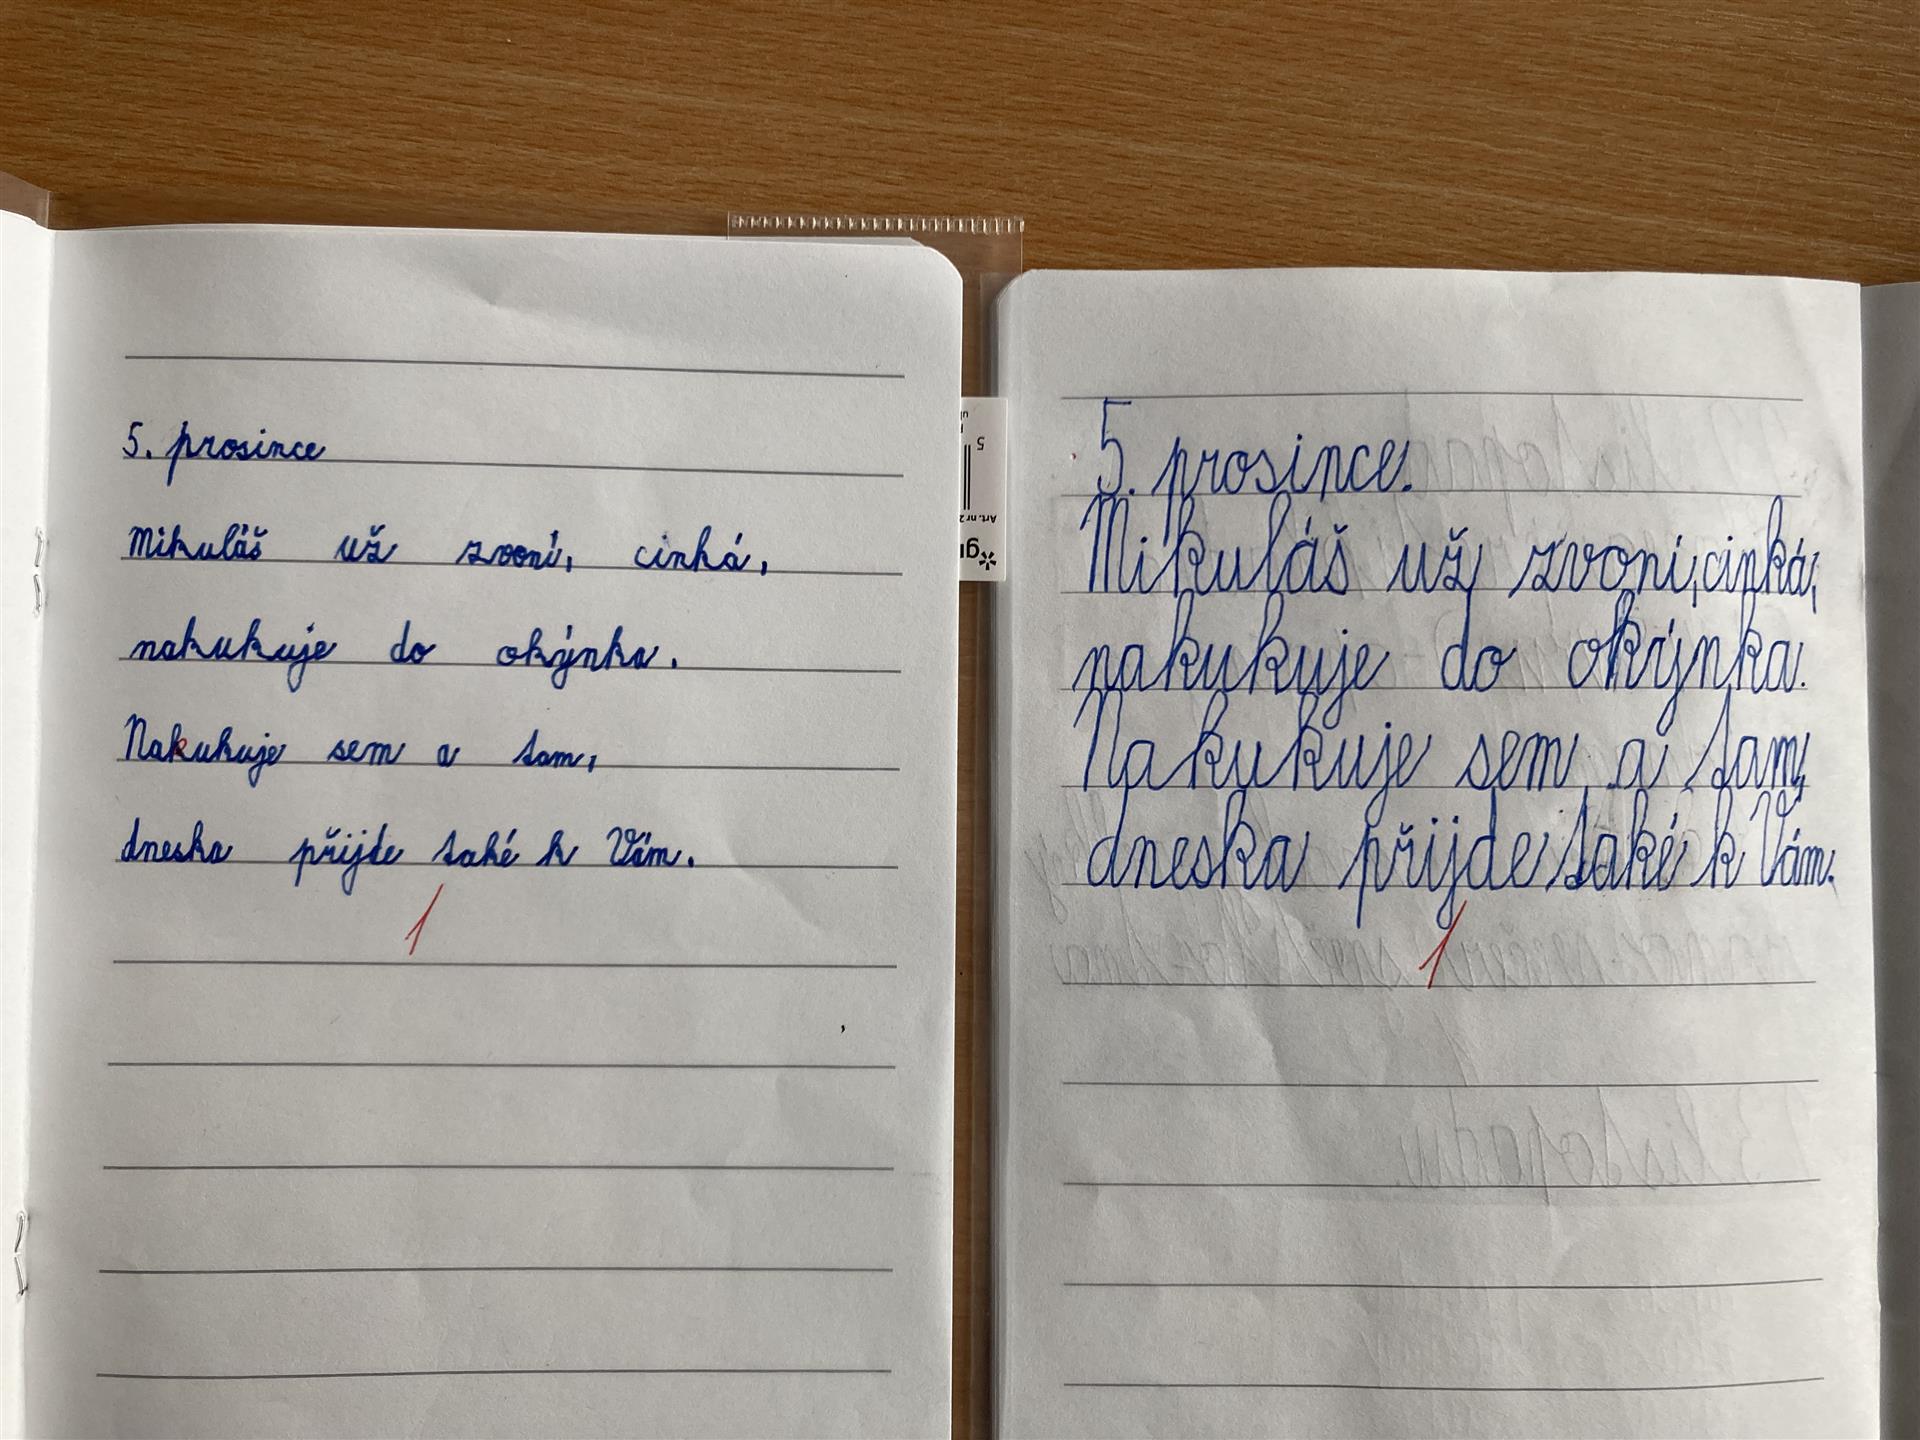 5. prosince
Mikuláš už zvoní, cinká,
nakukuje do okýnka.
Nakukuje sem a tam,
dneska přijde také k Vám.
1
5
Art. nr 2
5. prosince.
Mikuláš už zvoní, cinká,
nakukuje do okýnka.
Nakukuje sem a tam,
dneska přijde také k Vám.
1